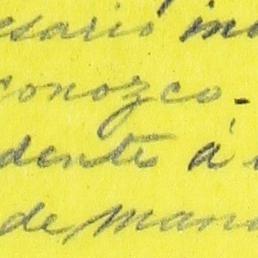 esario in
conozco.
dente á
de man